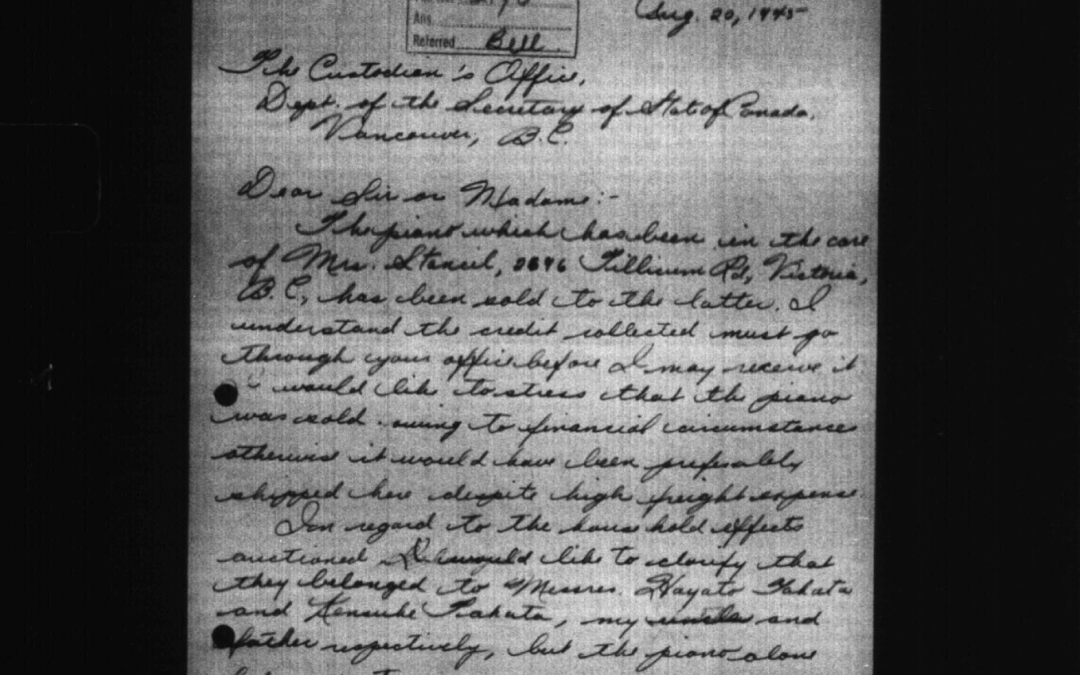 Ans.
Referred Bell
Aug. 20, 1945
The Custodian's Office,
Dept. of the Secretary of Stat of Canada,
Vancouver, B.C.
Dear Sir or Madame:-
The piano which has been in the care
of Mrs. Stancil, Tillicum Rd, Victoria,
B.C., has been sold to the latter. I
understand the credit collected must go
through your office before I may receive it
would like to stress that the piano
was sold owing to financial circumstance
otherwise it would have been preferably
shipped here despite high freight expense
In regard to the household effects
auctioned I would like to clarify that
they belonged to Messrs. Hayato Takata
and Kensuke Takata, my uncle and
father respectively, but the piano alone